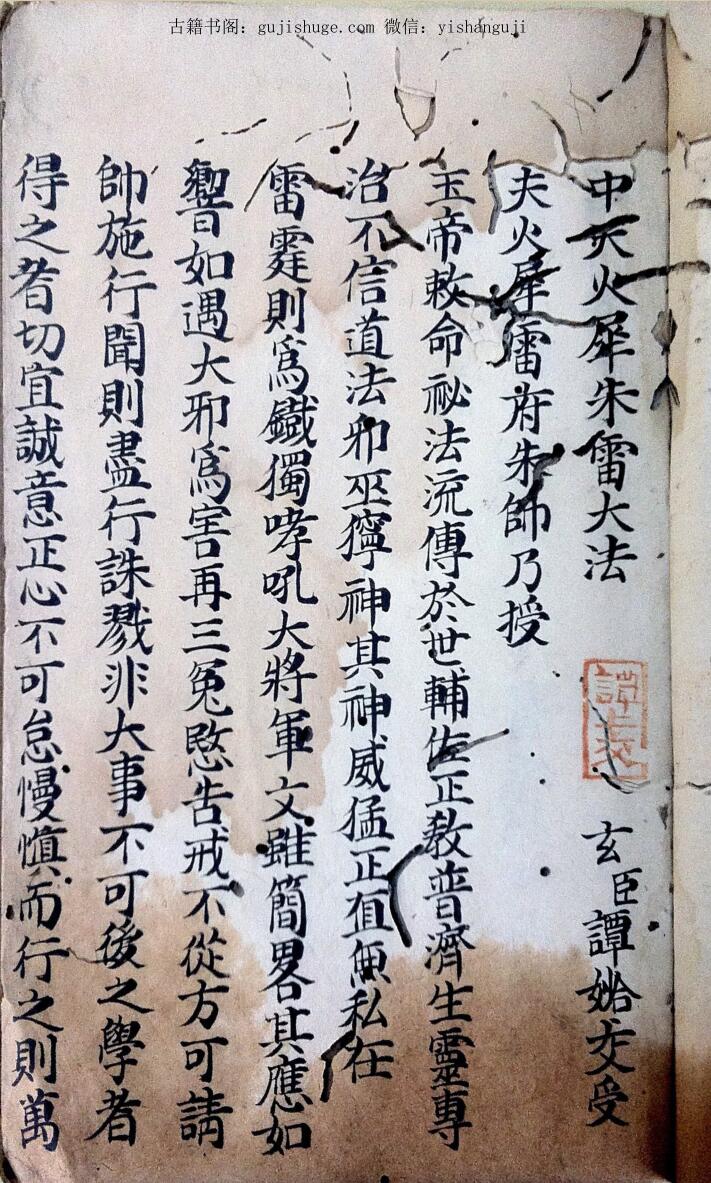 古籍书阁：gujishuge.com 微信：yishanguji
中天火犀朱雷大法 玄臣譚始受
夫火犀雷府朱帥乃授
玉帝敕命祕法流傳於世輔佐正教普濟生靈專
治不信道法邪巫獰神其神威猛正直無私在
雷霆則爲鐵獨哮吼大將軍文雖簡畧其應如
響如遇大邪爲害再三冤愍告戒不從方可請
帥施行聞則盡行誅戮非大事不可後之學者
得之者切宜誠意正心不可怠慢慎而行之則萬